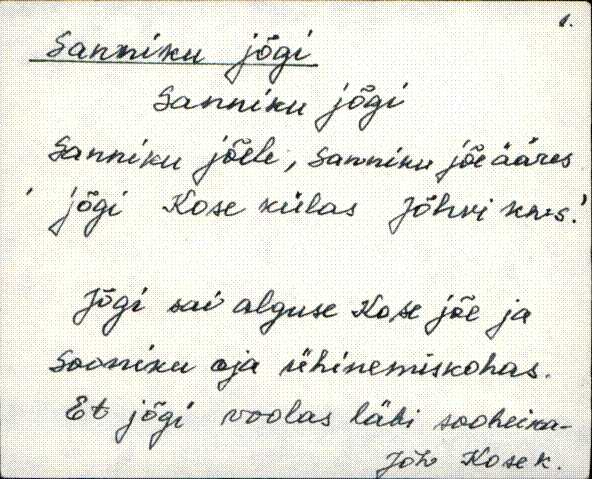 1.
Sanniku jõgi
Sanniku jõgi
Sanniku jõele, Sanniku jõe ääres
' jõgi Kose külas Jõhvi khks.'
Jõgi sai alguse Kose jõe ja
Sooniku oja ühinemiskohas.
Et jõgi voolas läbi sooheina-
Jõh Kose k.